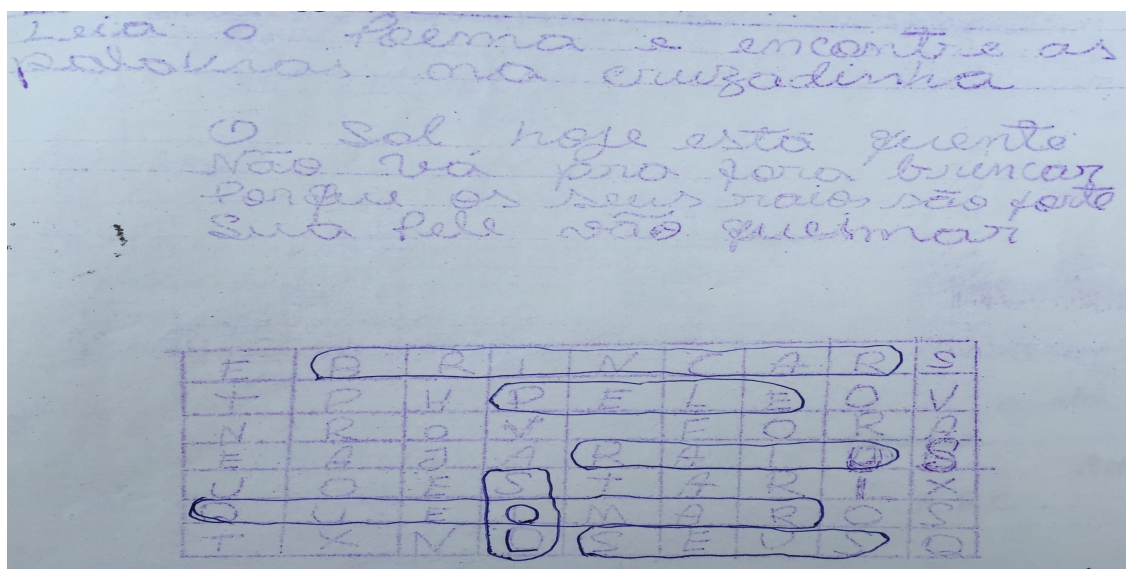 Leia o Poema e encontre as
palavras na cruzadinha
O Sol hoje está quente
Não vá pra fora brincar
Porque os seus raios são forte
Sua Pele vão queimar
E B R I N C A R S
T P H P E L E O V
N R O V F O R A
E A J A R A I U S
U O E S T A R I X
Q U E O M A R O S
T X N L S E U S Q